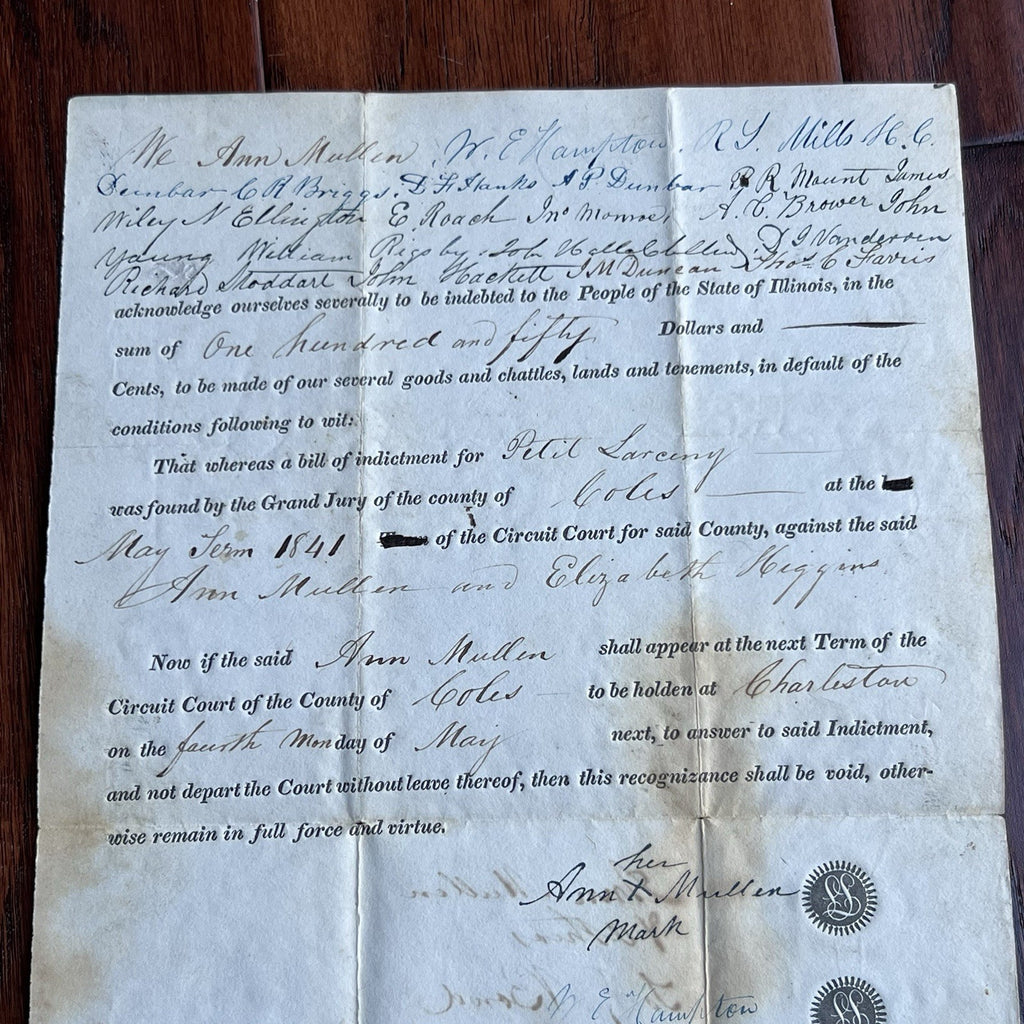 We Ann Mullen, W. E Hampton, R S. Mills H. C.
Dunbar C R Briggs. D F Hanks A P. Dunbar R R Mount James
Wiley N Ellington E. Roach Jno Monroe, A. C. Brower John
Young William Rigsby John D J Vanderren
Richard Stoddart John Hackett J M Duncan Thos C Farris
acknowledge ourselves severally to be indebted to the People of the State of Illinois, in the
sum of One hundred and fifty Dollars and
Cents, to be made of our several goods and chattles, lands and tenements, in default of the
conditions following to wit:
That whereas a bill of indictment for Petit Larceny
was found by the Grand Jury of the county of Coles at the
May Term 1841 of the Circuit Court for said County, against the said
Ann Mullen and Elizabeth Higgins
Now if the said Ann Mullen shall appear at the next Term of the
Circuit Court of the County of Coles to be holden at Charleston
on the fourth Monday of May next, to answer to said Indictment,
and not depart the Court without leave thereof, then this recognizance shall be void, other-
wise remain in full force and virtue.
her
Ann X Mullen LS
Mark
W E Hampton LS